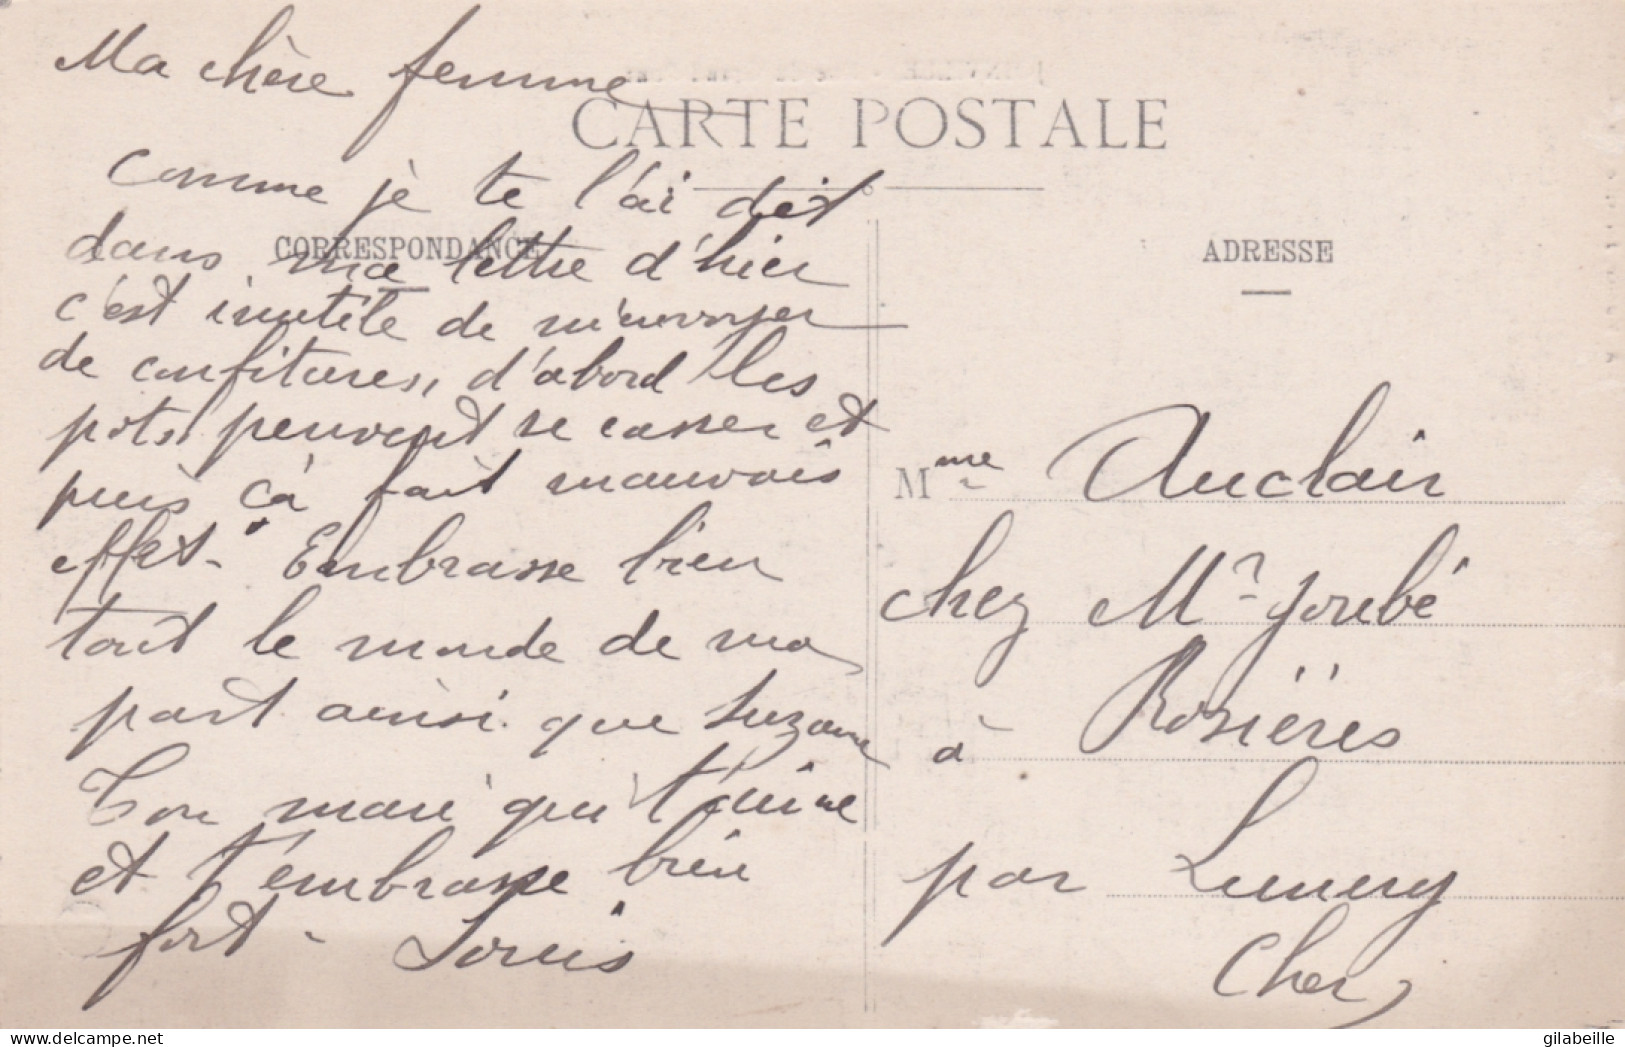 Ma chère femme
CARTE POSTALE
Comme je te l'ai dit
dans ma lettre d'hier
CORRESPONDANCE
c'est inutile de m'envoyer
de confitures, d'abord les
pots peuvent se casser et
puis ça fait mauvais
effet. Embrasse bien
tout le monde de ma
part ainsi que Suzanne
Ton mari qui t'aime
et t'embrasse bien
fort - Louis
ADRESSE
Mme Auclair
chez Mr Joubé
à Rosières
par Lunery
Cher
gilabeille